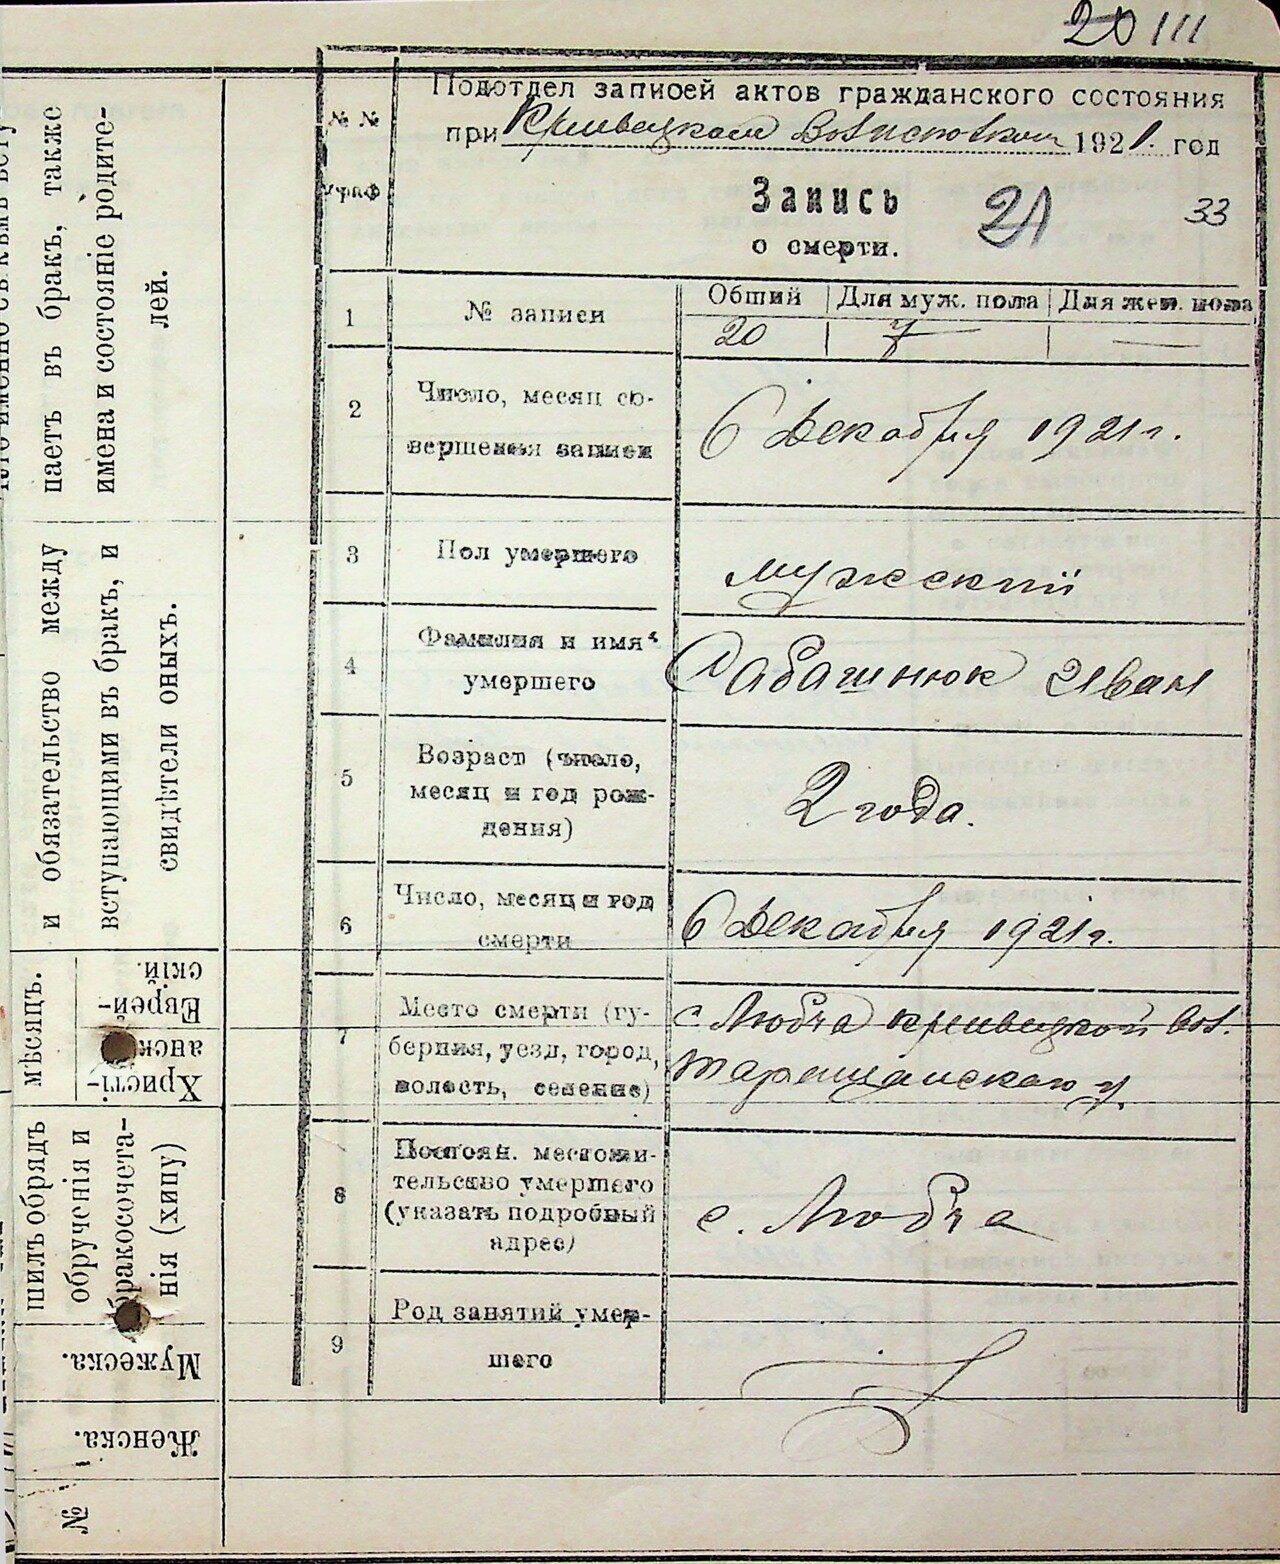 20 III
Подотдел записей актов гражданского состояния
при Кривецком Волисполкоме 1921. год
№ №
граф
Запись 21 33
о смерти.
1 № записи Общий Для муж. пола Для жен. пола
20 7 —
2 Число, месяц со-
вершения записи
6 Декабря 1921 г.
3 Пол умершего
мужский
4 Фамилия и имя
умершего
Сабашнюк Иван
5 Возраст (число,
месяц и год рож-
дения)
2 года.
6 Число, месяц и год
смерти
6 Декабря 1921 г.
7 Место смерти (гу-
берния, уезд, город,
волость, селение)
с Любча Кривецкой Вол.
Таращанского у.
8 Постоян. местожи-
тельство умершего
(указать подробный
адрес)
с. Любча
9 Род занятий умер-
шего
паетъ въ бракъ, также
имена и состояніе родите-
лей.
и обязательство между
вступающими въ бракъ, и
свидѣтели оныхъ.
мѣсяцъ.
Христі-
анск
Еврей-
скій.
шилъ обрядъ
обрученія и
бракосочета-
нія (хипу)
Мужеска.
Женска.
№